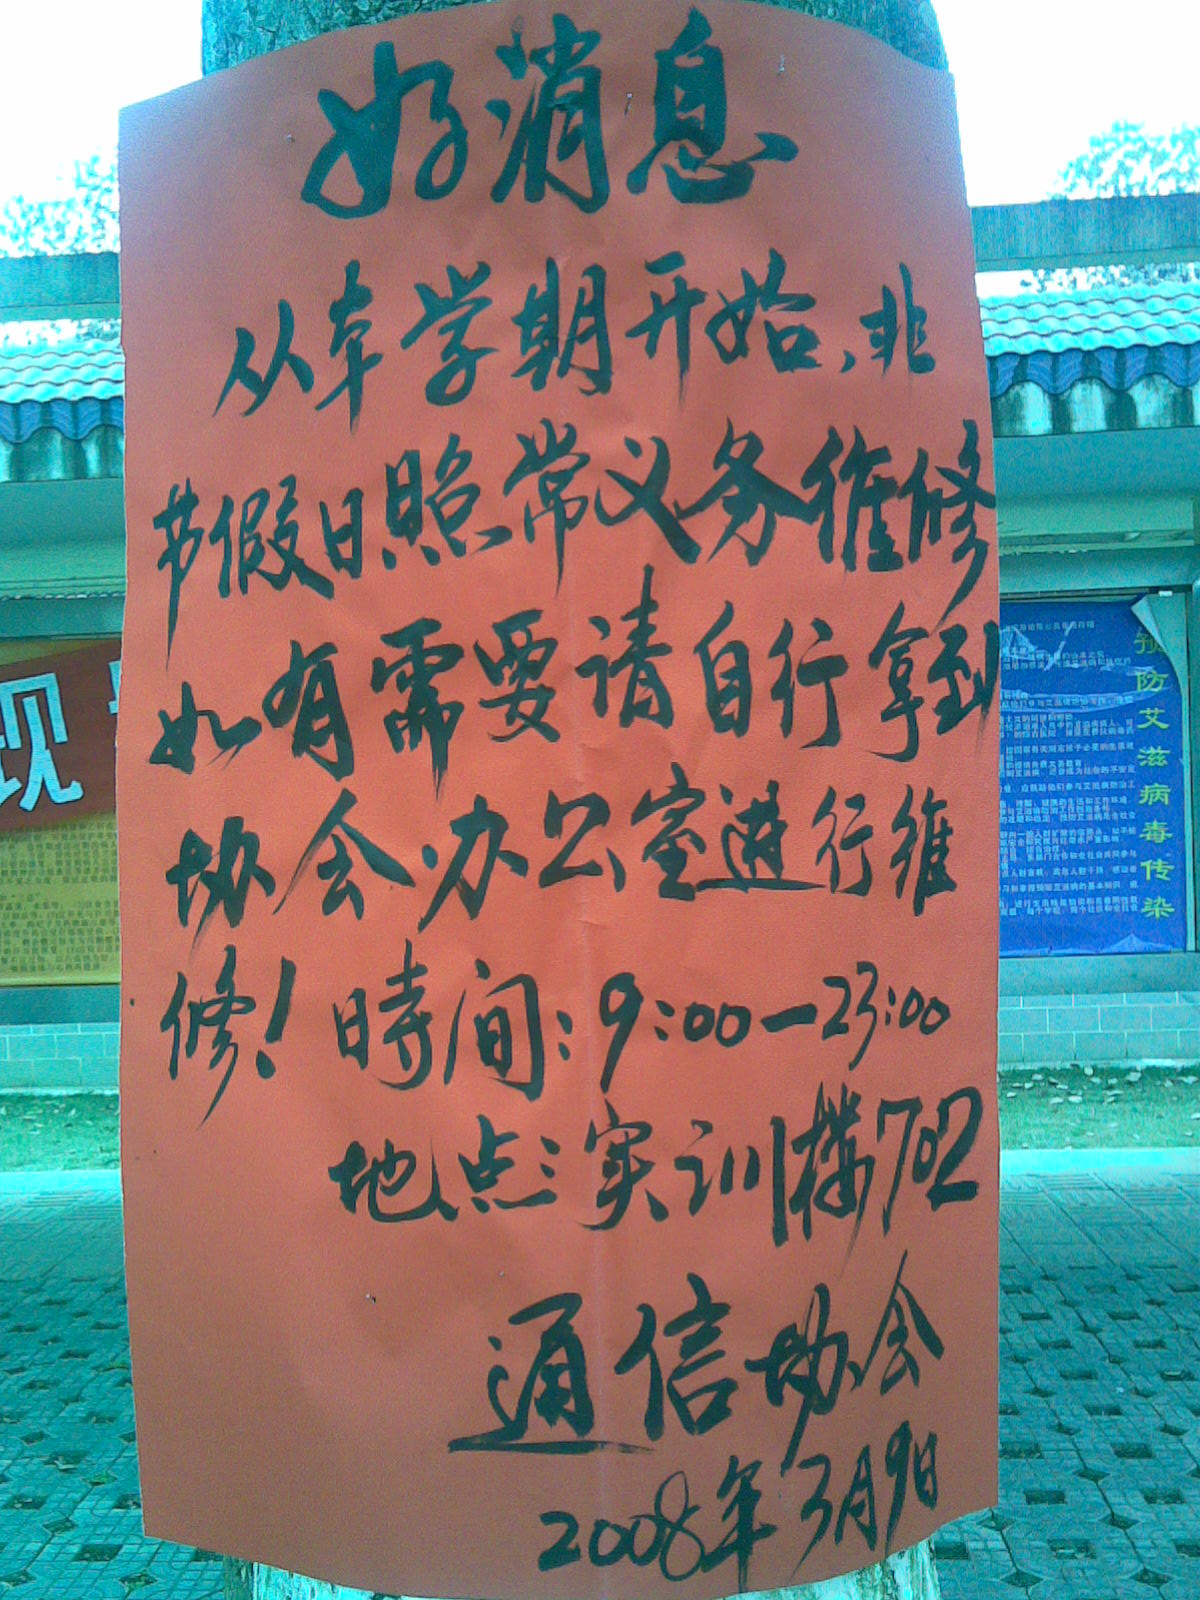 好消息
从本学期开始,非
节假日照常义务维修
如有需要请自行拿到
协会办公室进行维
修!時间:9:00—23:00
地点:实训楼702
通信协会
2008年3月9日
现
预防艾滋病毒传染